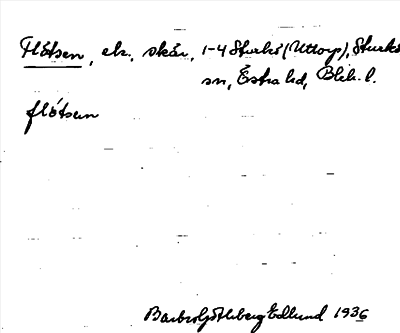 Flötsen, ek., skär, 1-4 Sturkö (Uttorp), Sturkö
sn, Östra hd, Blek. l.
flötsen
Barbro Göthberg Edlund 1936